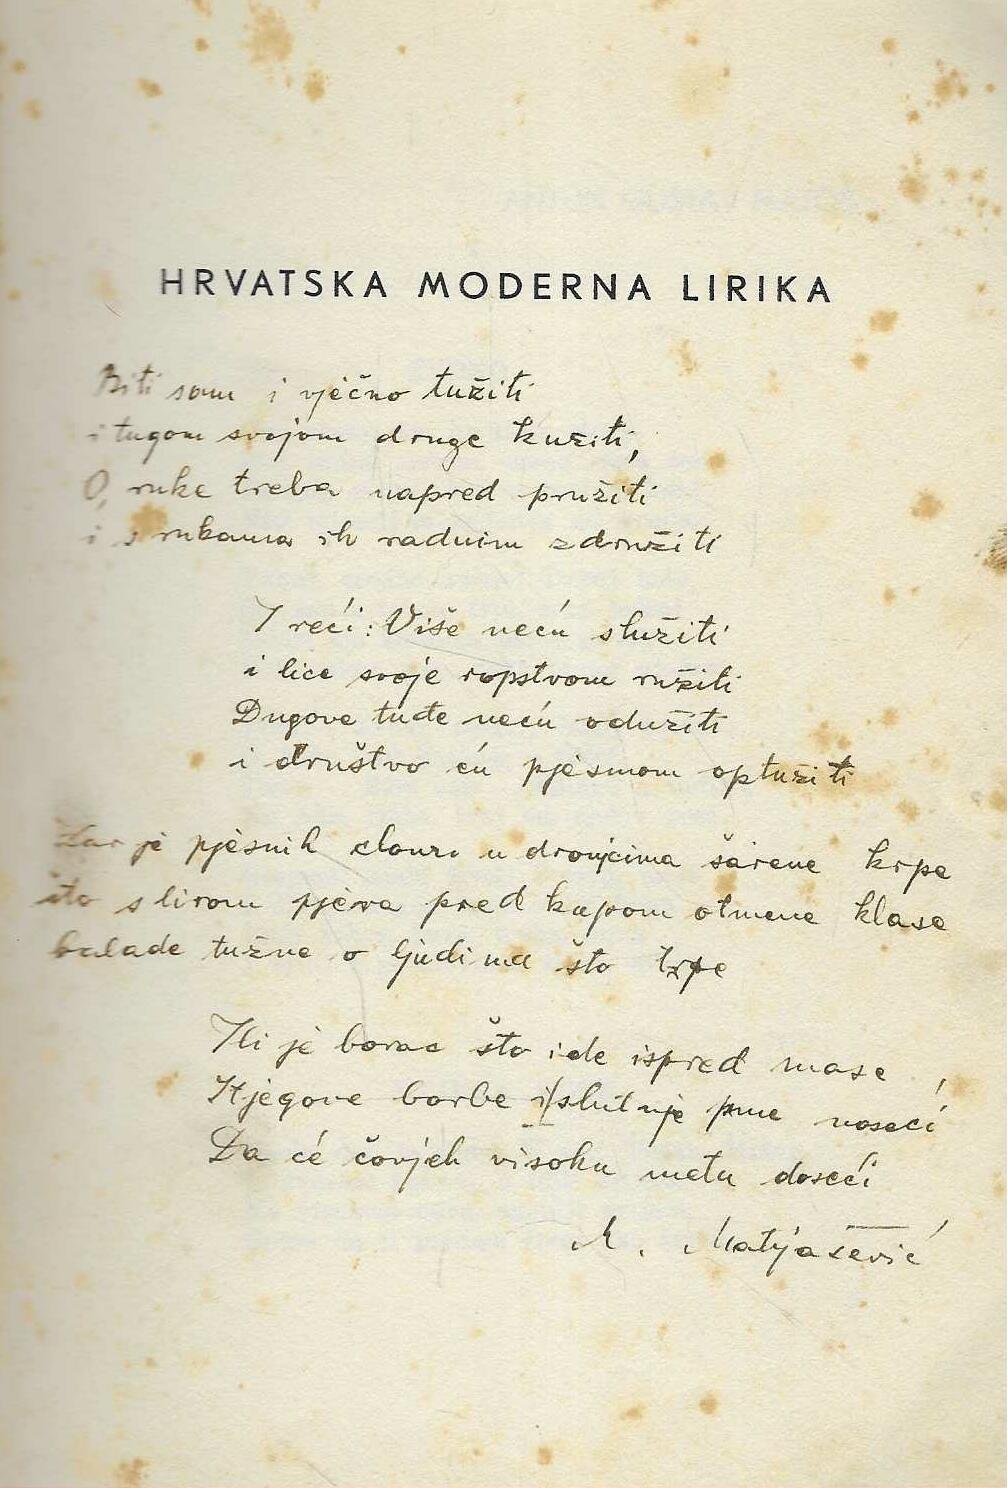 HRVATSKA MODERNA LIRIKA
Biti sam i vječno tužiti
i tugom svojom druge kužiti,
O, ruke treba napred pružiti
i s rukama ih radnim združiti
I reći: Više neću služiti
i lice svoje ropstvom ružiti
Dugove tuđe neću odužiti
i društvo ću pjesmom optužiti
Zar je pjesnik clown u dronjcima šarene krpe
što s lirom pjeva pred kapom otmene klase
balade tužne o ljudima što trpe
Ili je borac što ide ispred mase
Njegove borbe i slutnje pune noseći
Da će čovjek visoku metu doseći
M. Matijašević